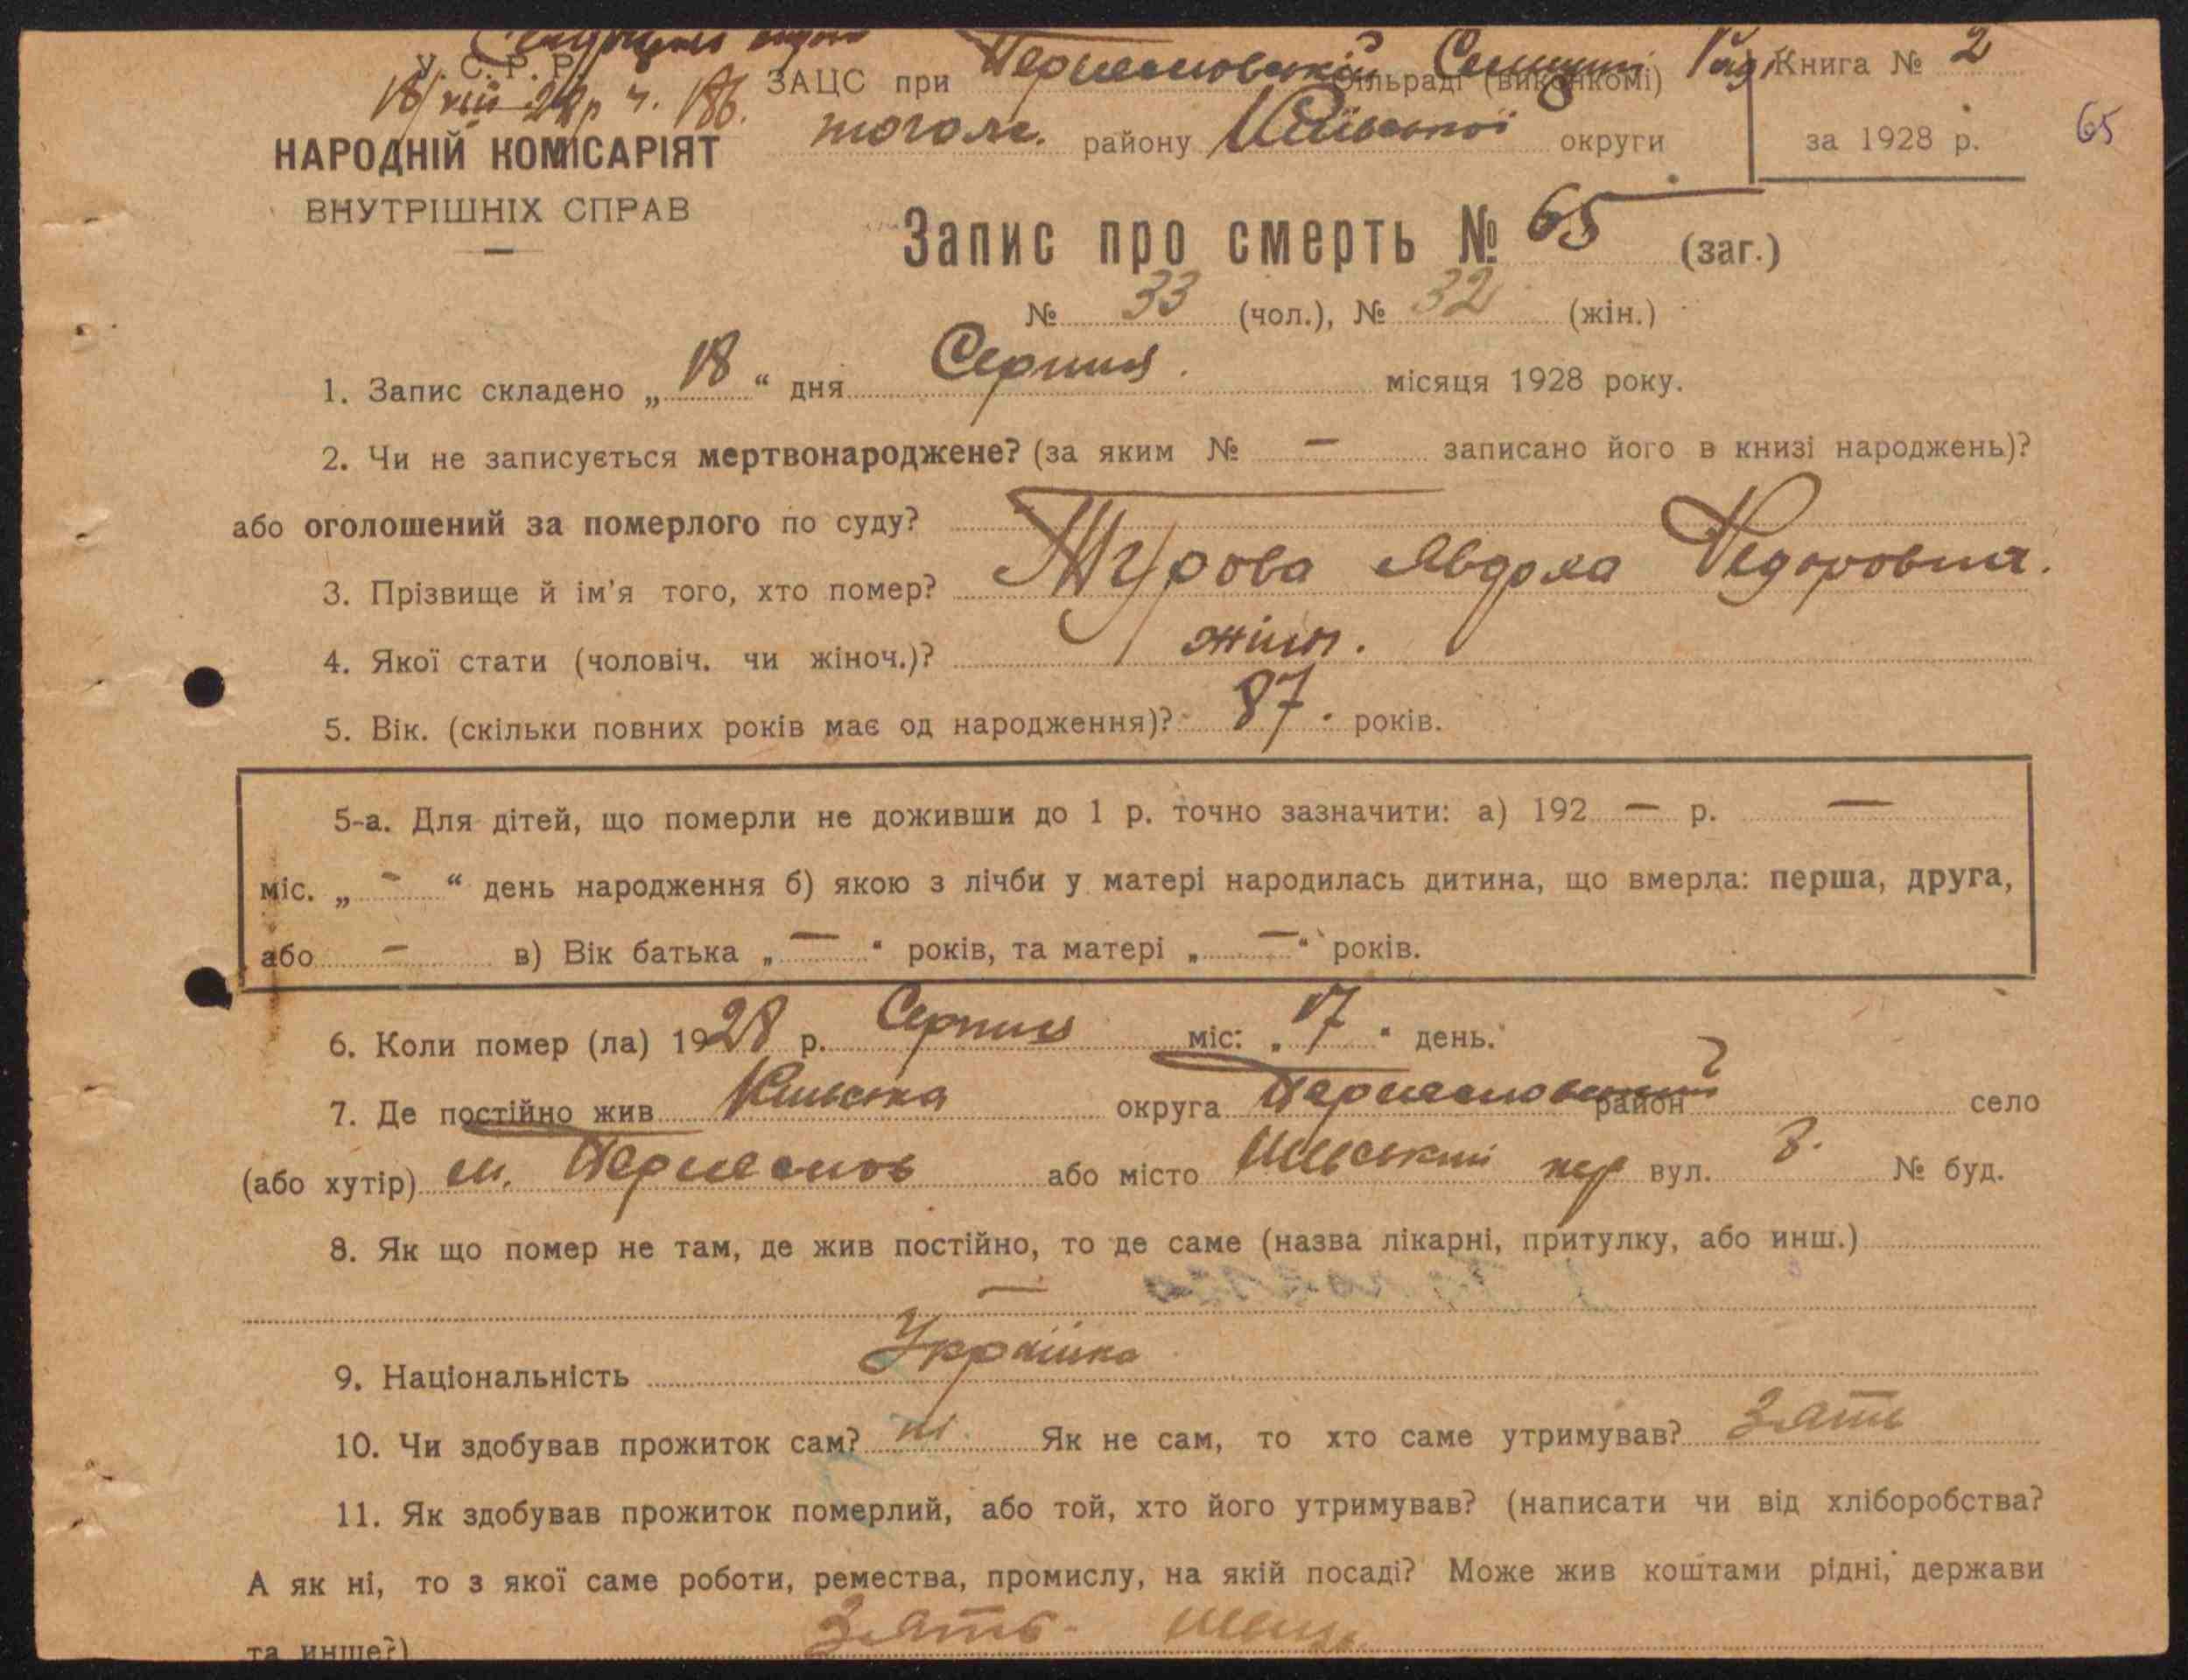 У. С. Р. Р. ЗАЦС при Сільраді (виконкомі) Книга № 2
того ж району Київської округи за 1928 р. 65
НАРОДНІЙ КОМІСАРІЯТ
ВНУТРІШНІХ СПРАВ
Запис про смерть № 65 (заг.)
№ 33 (чол.), № 32 (жін.)
1. Запис складено „ 18 “ дня Серпня місяця 1928 року.
2. Чи не записується мертвонароджене? (за яким № — записано його в книзі народжень)?
або оголошений за померлого по суду?
3. Прізвище й ім'я того, хто помер? Турова Явдоха Федоровна.
4. Якої стати (чоловіч. чи жіноч.)? жіноч.
5. Вік. (скільки повних років має од народження)? 87 років.
5-а. Для дітей, що померли не доживши до 1 р. точно зазначити: а) 192 — р. —
міс. „ - “ день народження б) якою з лічби у матері народилась дитина, що вмерла: перша, друга,
або - в) Вік батька „ — “ років, та матері „ — “ років.
6. Коли помер (ла) 1928 р. Серпня міс: „ 17 “ день.
7. Де постійно жив Київська округа район село
(або хутір) м. або місто пер вул. 8. № буд.
8. Як що помер не там, де жив постійно, то де саме (назва лікарні, притулку, або инш.)
—
9. Національність Українка
10. Чи здобував прожиток сам? ні. Як не сам, то хто саме утримував? Зять
11. Як здобував прожиток померлий, або той, хто його утримував? (написати чи від хліборобства?
А як ні, то з якої саме роботи, ремества, промислу, на якій посаді? Може жив коштами рідні, держави
та инше?) Зять -